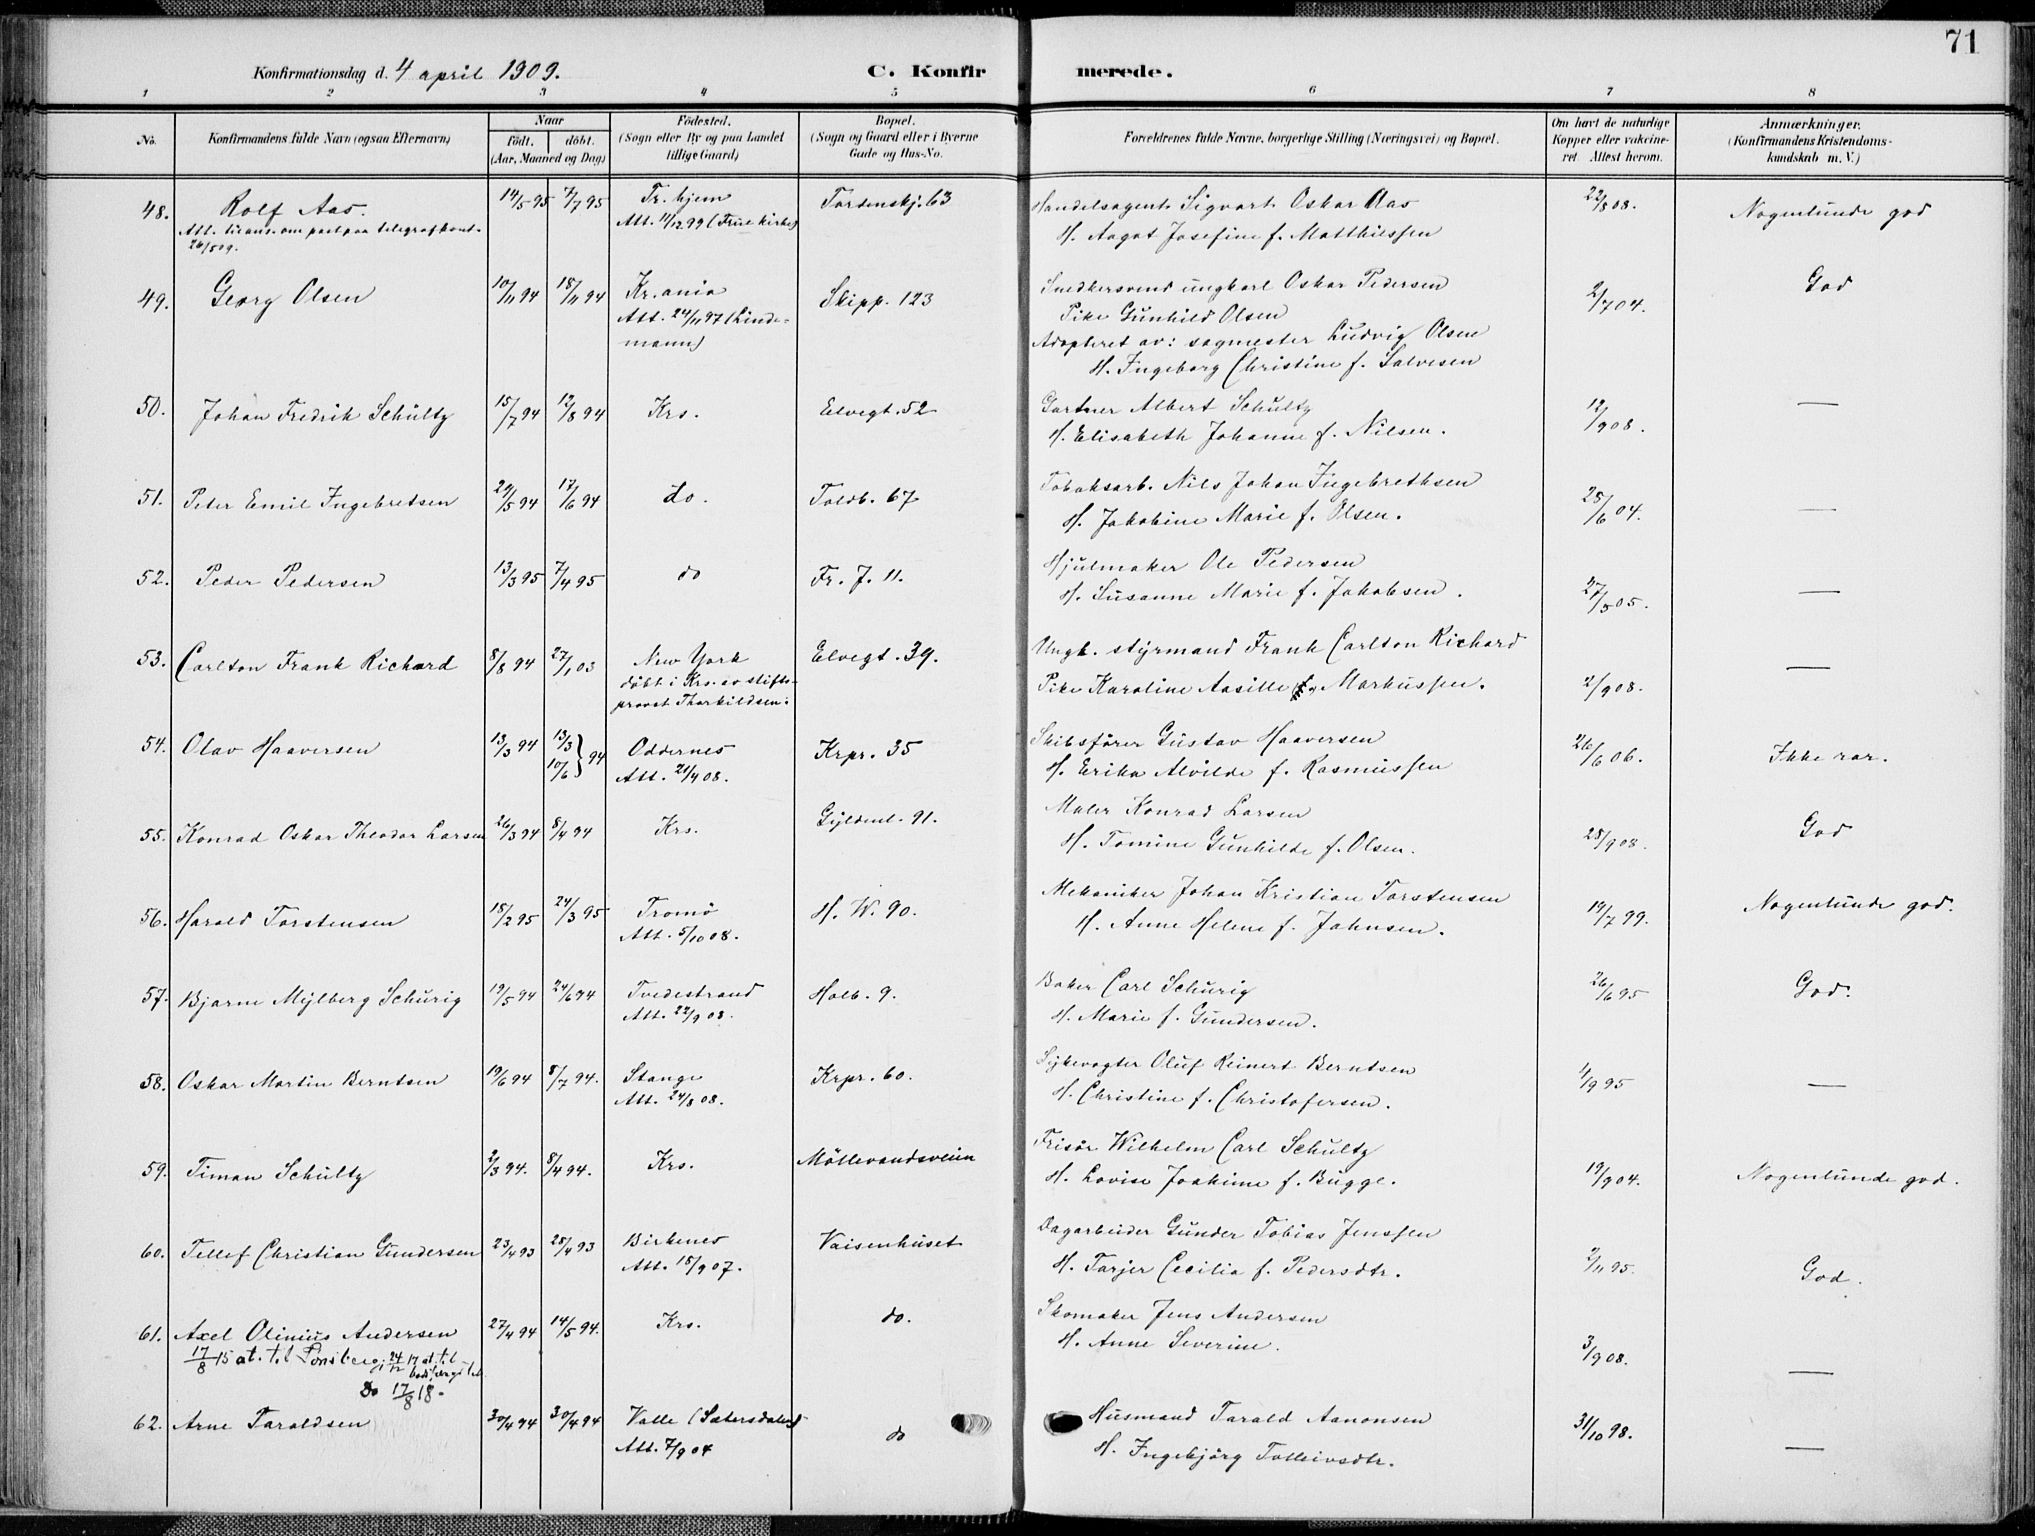 71
Konfirmationsdag d. 4 april 1909. C. Konfirmerede.
1 2 3 4 5 6 7 8
No. Konfirmandens fulde Navn (ogsaa Efternavn) Naar födt. döbt. (Aar, Maaned og Dag) Födested. (Sogn eller By og paa Landet tillige Gaard) Bopæl. (Sogn og Gaard eller i Byerne Gade og Hus-No. Forældrenes fulde Navne, borgerlige Stilling (Næringsvei) og Bopæl. Om havt de naturlige Kopper eller vakcineret. Attest herom. Anmærkninger. (Konfirmandens Kristendomskundskab m. V.)
48. Rolf Aas. 14/5 95 7/7 95 Tr.hjem Tordenskj. 63 Handelsagent Sigvart Oskar Aas 22/8 08. Nogenlunde god
Att. om post paa telegrafkont. Att. 11/12 99 (Frue kirke) H. Aagot Josefine f. Matthiessen
26/5 09.
49. Georg Olsen 10/11 94 18/11 94 Kr.ania Skipp. 123 Snedkersvend ungkarl Oskar Pedersen 2/7 04. God
Att. 24/11 97 (Linde- Pike Gunhild Olsen
mann) Adopteret av: sagmester Ludvig Olsen
H. Ingeborg Christine f. Salvesen
50. Johan Fredrik Schültz 15/7 94 12/8 94 Krs. Elvegt. 52 Gartner Albert Schultz 12/9 08. —
H. Elisabeth Johanne f. Nilsen.
51. Peter Emil Ingebretsen 29/5 94 17/6 94 do. Toldb. 67 Tobaksarb. Nils Johan Ingebrethsen 25/6 04. —
H. Jakobine Marie f. Olsen.
52. Peder Pedersen 13/3 95 7/4 95 do Fr. J. 11. Hjulmaker Ole Pedersen 27/5 05. —
H. Susanne Marie f. Jakobsen.
53. Carlton Frank Richard 8/8 94 27/1 03 New York Elvegt. 39. Ungk. styrmand Frank Carlton Richard 2/9 08. —
döbt i Krs. av stifts- Pike Karoline Aasille Markussen.
provst Thorkildsen.
54. Olav Haaversen 13/3 94 13/3 10/6 } 94 Oddernes Krpr. 35 Skibsförer Gustav Haaversen 26/6 06. Ikke rar.
Att. 21/4 08. H. Erika Alvilde f. Rasmussen
55. Konrad Oskar Theodor Larsen 26/3 94 8/4 94 Krs. Gyldenl. 91. Maler Konrad Larsen 25/9 08. God
H. Tomine Gunhilde f. Olsen.
56. Harald Torstensen 18/2 95 24/3 95 Tromö H. W. 90. Mekaniker Johan Kristian Torstensen 19/7 99. Nogenlunde god.
Att. 5/10 08. H. Anne Helene f. Johnsen.
57. Bjarne Mylberg Schurig 19/5 94 24/6 94 Tvedestrand Holb. 9. Baker Carl Schurig 26/6 95 God.
Att. 22/9 08. H. Marie f. Gundersen.
58. Oskar Martin Berntsen 19/6 94 8/7 94. Stange Krpr. 60. Sykevogter Oluf Reinert Berntsen 4/9 95 —
Att. 24/8 08. H. Christine f. Christofersen.
59. Timan Schultz 2/3 94. 8/4 94. Krs. Möllevandsveien Frisör Wilhelm Carl Schultz 19/9 04. Nogenlunde god.
H. Lovise Joakime f. Bugge.
60. Tellef Christian Gundersen 23/4 93 28/4 93 Birkenes Vaisenhuset Dagarbeider Gunder Tobias Jenssen 2/11 95. God.
Att. 18/9 07. H. Tarjer Cecilia f. Pedersdtr.
61. Axel Olinius Andersen 27/4 94 14/5 94. Krs. do. Skomaker Jens Andersen 3/9 08. —
17/8 15 at. til Tönsberg; 24/12 17 at. til H. Anne Severine.
Do 17/8 18.
62. Arne Taraldsen 30/4 94 30/4 94 Valle (Sætersdalen) do Husmand Tarald Aanonsen 31/10 98. —
Att. 7/9 04 H. Ingebjörg Tolleivsdtr.